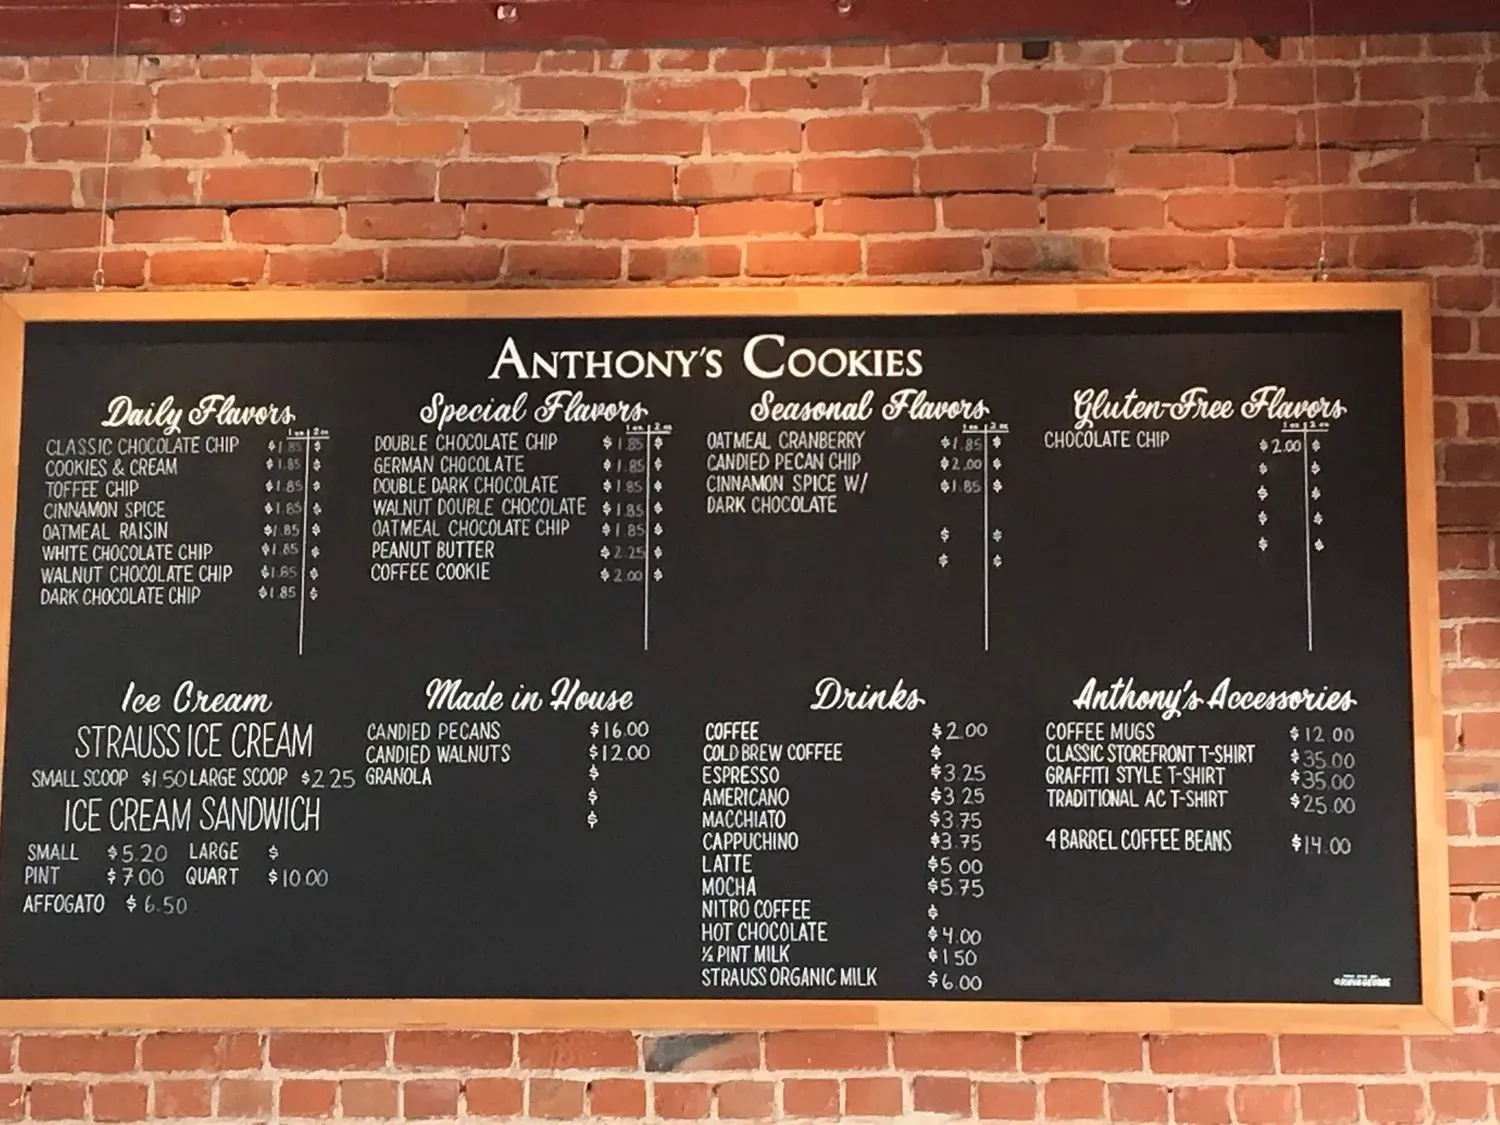 ANTHONY'S COOKIES
Daily Flavors
1 oz 2 oz
CLASSIC CHOCOLATE CHIP $1.85 $
COOKIES & CREAM $1.85 $
TOFFEE CHIP $1.85 $
CINNAMON SPICE $1.85 $
OATMEAL RAISIN $1.85 $
WHITE CHOCOLATE CHIP $1.85 $
WALNUT CHOCOLATE CHIP $1.85 $
DARK CHOCOLATE CHIP $1.85 $
Special Flavors
1 oz 2 oz
DOUBLE CHOCOLATE CHIP $1.85 $
GERMAN CHOCOLATE $1.85 $
DOUBLE DARK CHOCOLATE $1.85 $
WALNUT DOUBLE CHOCOLATE $1.85 $
OATMEAL CHOCOLATE CHIP $1.85 $
PEANUT BUTTER $2.25 $
COFFEE COOKIE $2.00 $
Seasonal Flavors
1 oz 2 oz
OATMEAL CRANBERRY $1.85 $
CANDIED PECAN CHIP $2.00 $
CINNAMON SPICE W/ $1.85 $
DARK CHOCOLATE
$ $
$ $
Gluten-Free Flavors
1 oz 2 oz
CHOCOLATE CHIP $2.00 $
$ $
$ $
$ $
$ $
Ice Cream
STRAUSS ICE CREAM
SMALL SCOOP $1.50 LARGE SCOOP $2.25
ICE CREAM SANDWICH
SMALL $5.20 LARGE $
PINT $7.00 QUART $10.00
AFFOGATO $6.50
Made in House
CANDIED PECANS $16.00
CANDIED WALNUTS $12.00
GRANOLA $
$
$
Drinks
COFFEE $2.00
COLD BREW COFFEE $
ESPRESSO $3.25
AMERICANO $3.25
MACCHIATO $3.75
CAPPUCHINO $3.75
LATTE $5.00
MOCHA $5.75
NITRO COFFEE $
HOT CHOCOLATE $4.00
½ PINT MILK $1.50
STRAUSS ORGANIC MILK $6.00
Anthony's Accessories
COFFEE MUGS $12.00
CLASSIC STOREFRONT T-SHIRT $35.00
GRAFFITI STYLE T-SHIRT $35.00
TRADITIONAL AC T-SHIRT $25.00
4 BARREL COFFEE BEANS $14.00